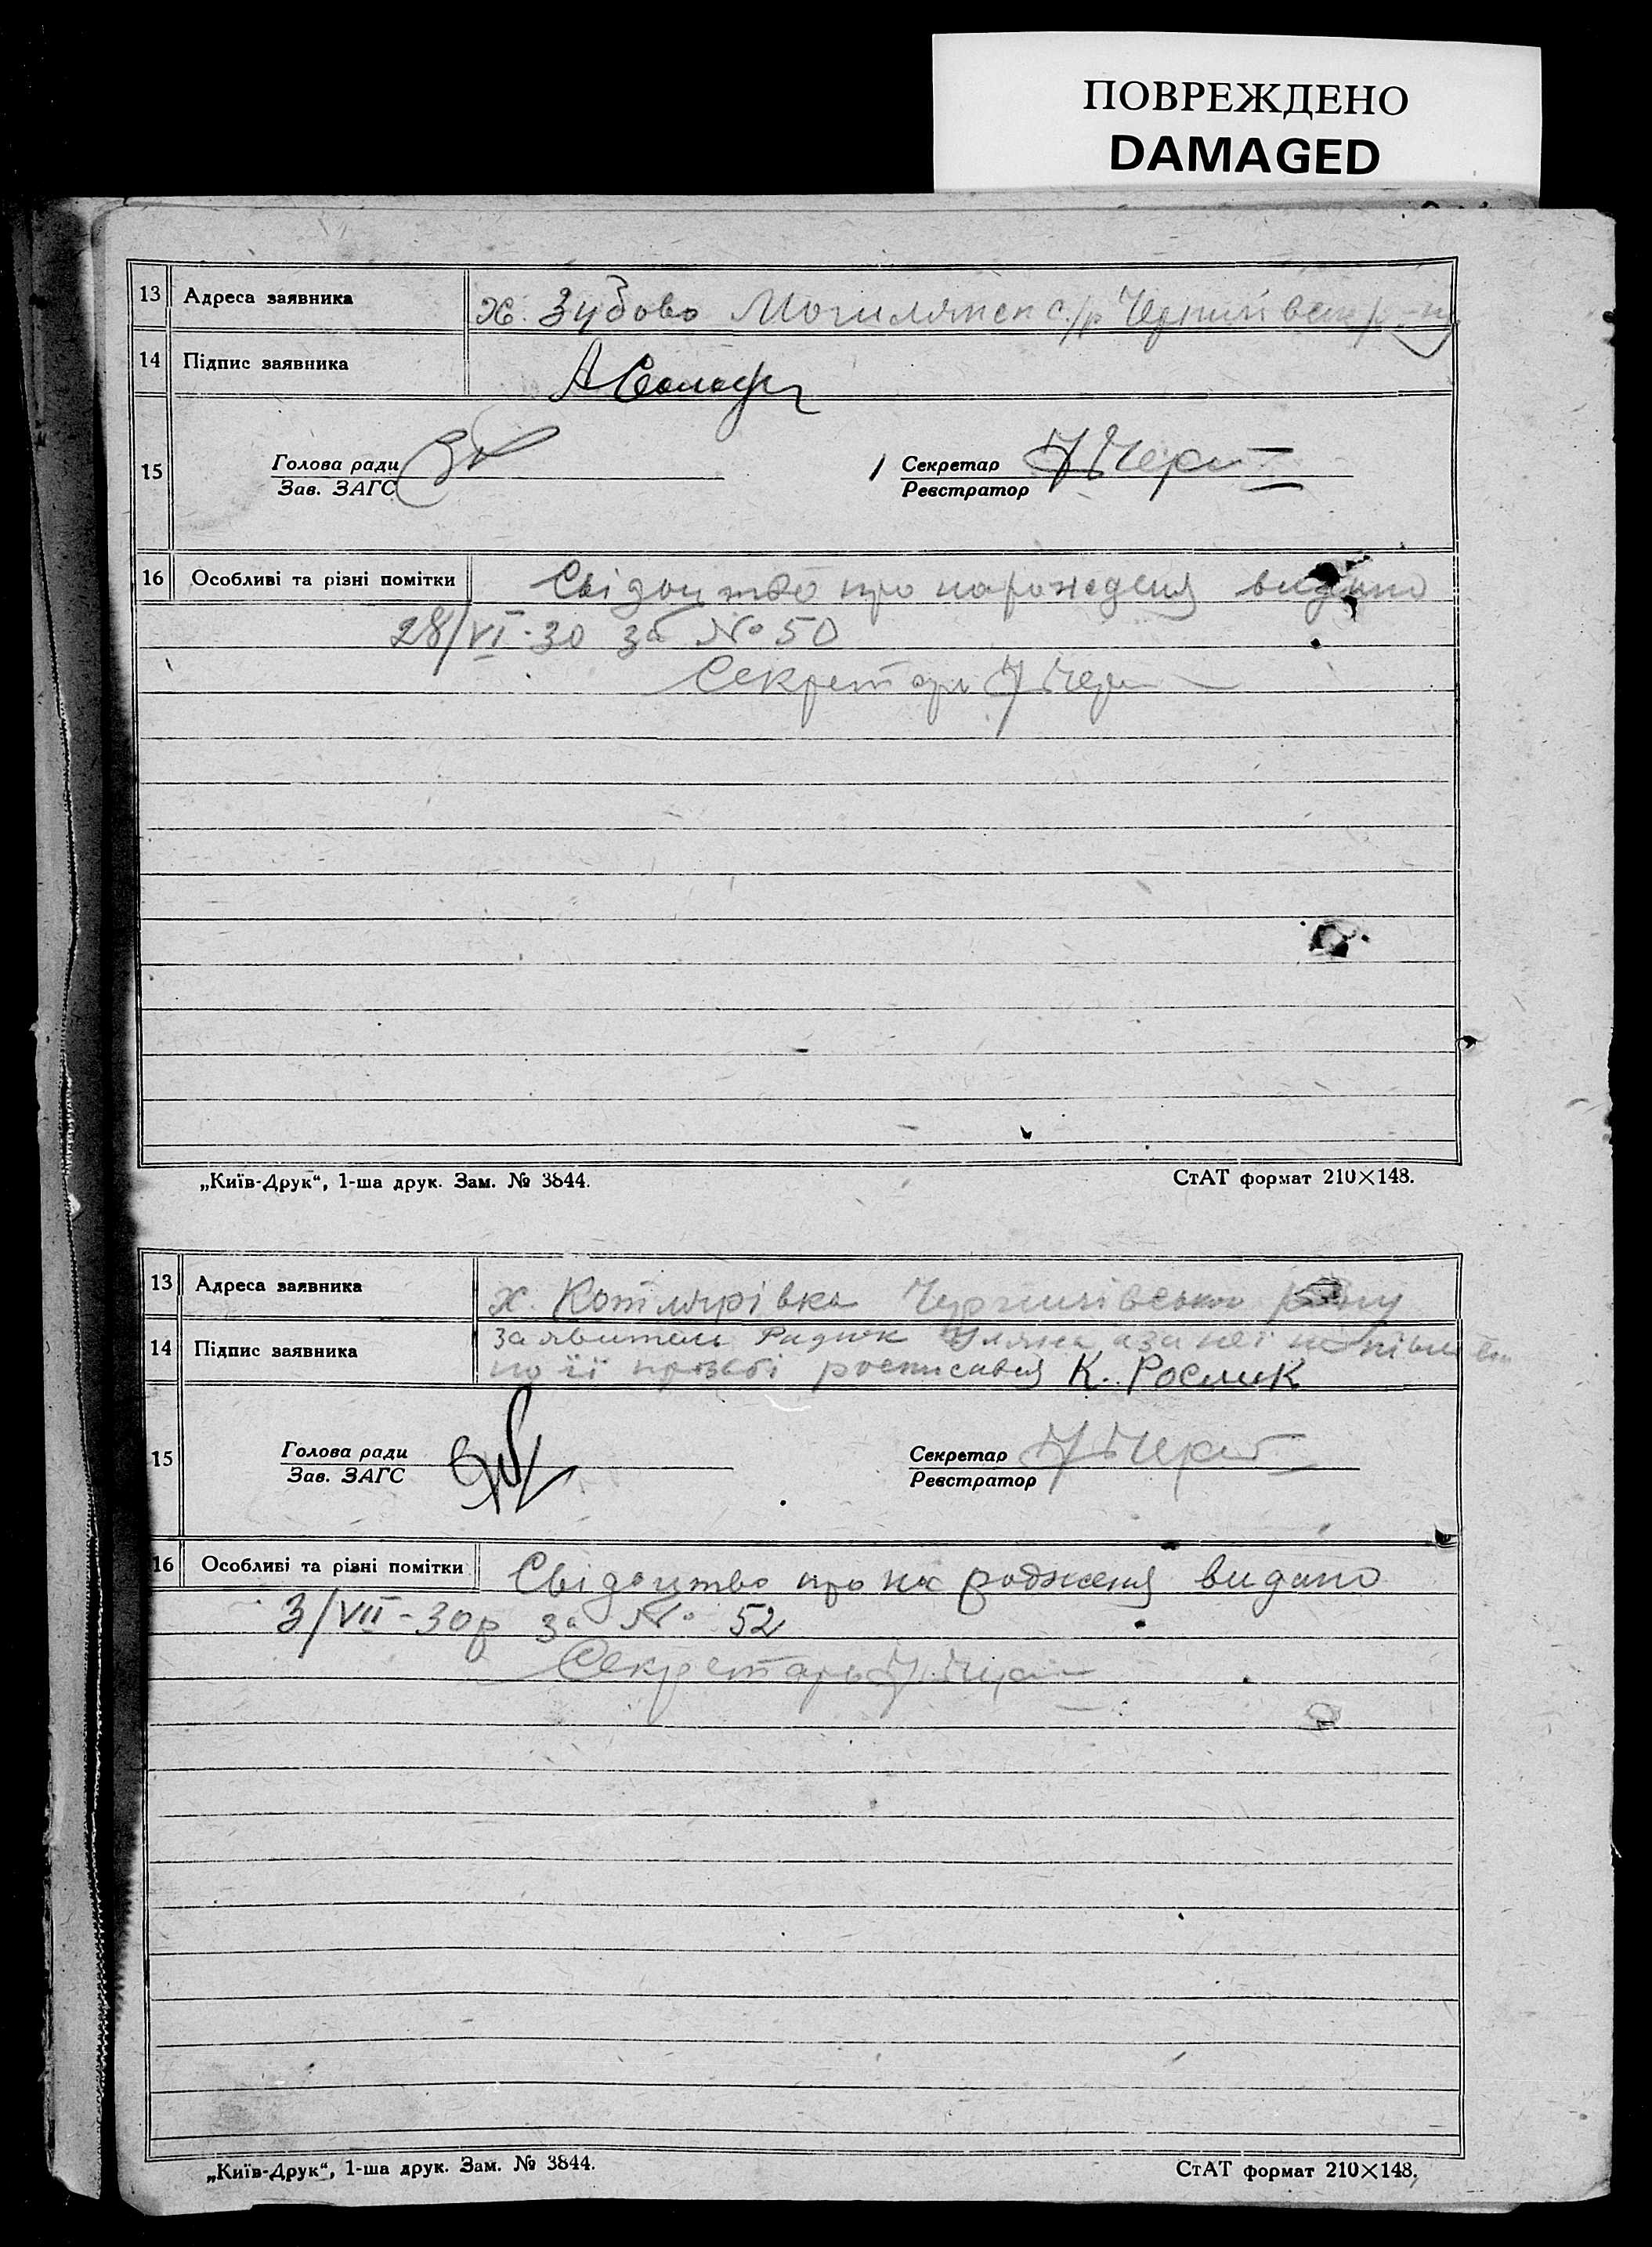 ПОВРЕЖДЕНО
DAMAGED
13 Адреса заявника х. Зубово Могилянск с/р
14 Підпис заявника
15 Голова ради Секретар
Зав. ЗАГС Реєстратор
16 Особливі та різні помітки Свідоцтво про народженя видано
28/VI-30 за № 50
Секретарь
„Київ-Друк“, 1-ша друк. Зам. № 3844. СтАТ формат 210×148.
13 Адреса заявника х. Котлярівка
14 Підпис заявника заявитель Радюк Уляна а за неї
по її прозьбі росписався К. Рослик
15 Голова ради Секретар
Зав. ЗАГС Реєстратор
16 Особливі та різні помітки Свідоцтво про народженя видано
3/VII-30р за № 52
Секретарь
„Київ-Друк“, 1-ша друк. Зам. № 3844. СтАТ формат 210×148.